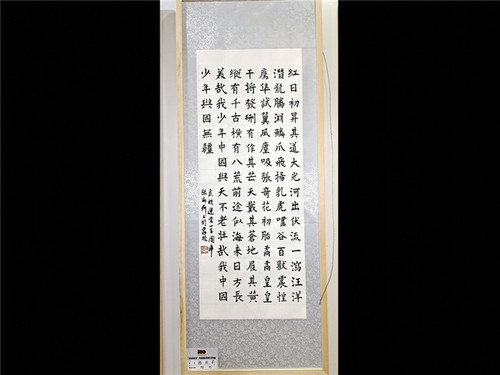 紅日初昇其道大光河出伏流一瀉汪洋
潛龍騰淵鱗爪飛揚乳虎嘯谷百獸震惶
鷹隼試翼風塵吸張奇花初胎矞矞皇皇
干將發硎有作其芒天戴其蒼地履其黃
縱有千古橫有八荒前途似海來日方長
美哉我少年中國與天不老壯哉我中國
少年與國無疆
建黨一百周年